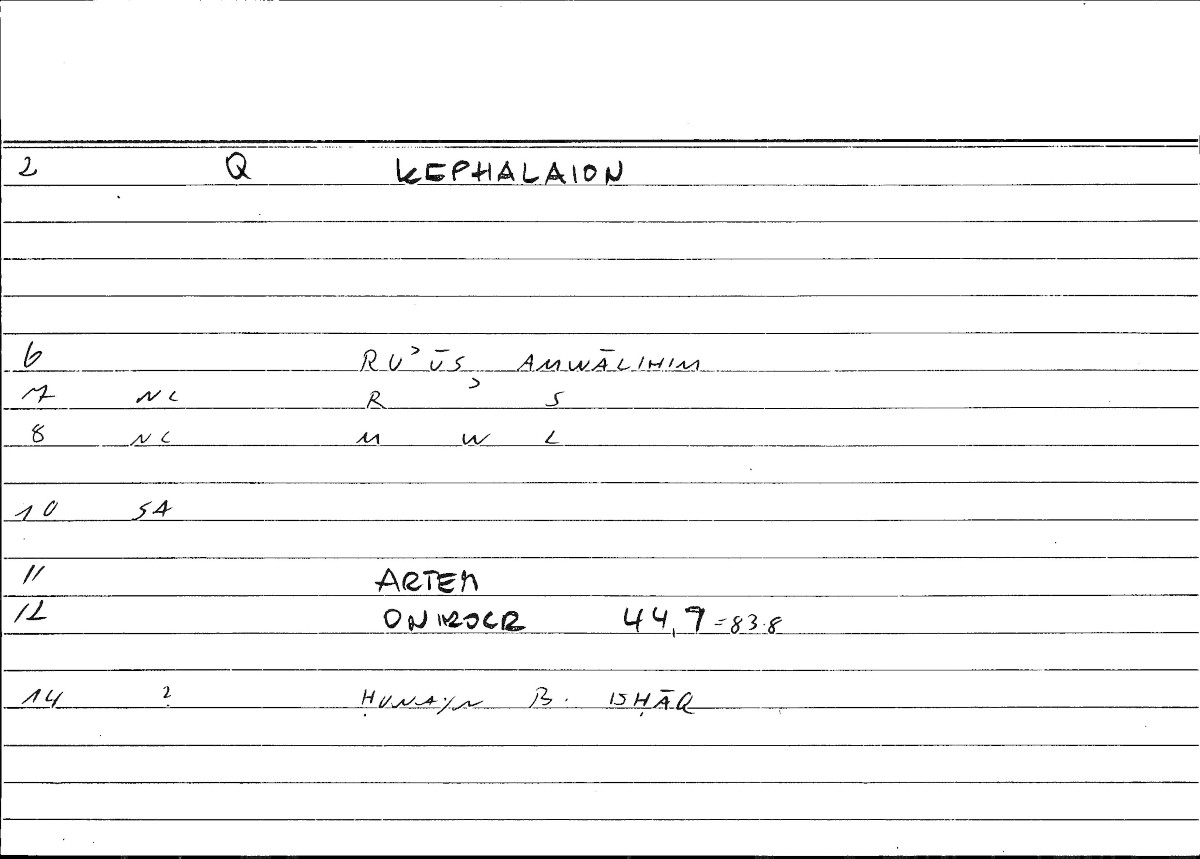 2 Q KEPHALAION
6 RUʾŪS AMWĀLIHIM
7 NL R ʾ S
8 NL M W L
10 SA
11 ARTEM
12 ONIROCR 44,7=83.8
14 2 ḤUNAYN B. ISḤĀQ